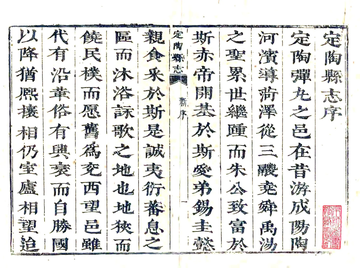 定陶縣志序
定陶彈丸之邑在昔游成陽陶
河濱導菏澤從三朡堯舜禹湯
之聖累世繼踵而朱公致富於
斯赤帝開基於斯愛弟錫圭懿
親食采於斯是誠夷衍蕃息之
區而沐浴詠歌之地也地狹而
饒民樸而愿舊爲兗西望邑雖
代有沿革俗有興衰而自勝國
以降猶熙攘相仍室廬相望迨
定陶縣志
序